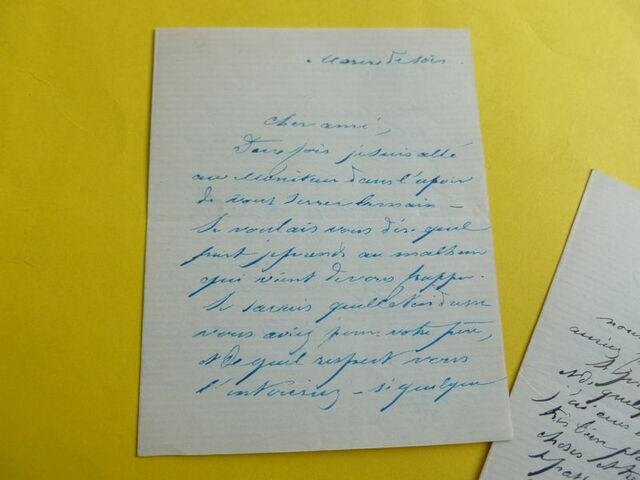 Mercredi soir
Cher ami,
Deux fois je suis allé
au Moniteur dans l'espoir
de vous serrer la main —
Je voulais vous dire quel
part je prends au malheur
qui vient de vous frapper.
Je savais quelle tendresse
vous aviez pour votre père,
et de quel respect vous
l'entouriez — si quelque
nous
auriez
et de quelque
j'ai eu
très bien
choses et